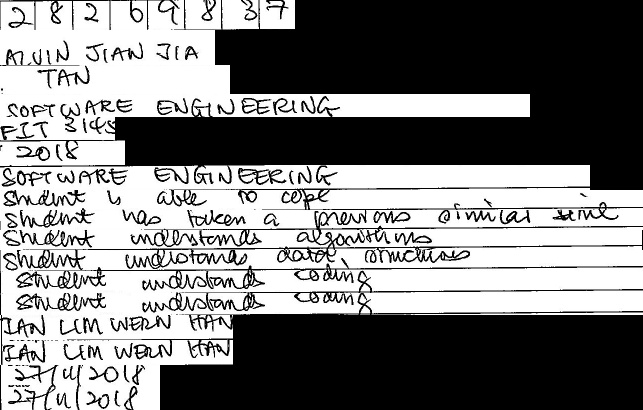 28269837
ALVIN JIAN JIA
TAN
SOFTWARE ENGINEERING
FIT 3145
2018
SOFTWARE ENGINEERING
Student is able to cope
Student has taken a previous similar
Student understands algorithms
Student understands data structures
Student understands coding
Student understands coding
IAN LIM WERN HAN
IAN LIM WERN HAN
27/11/2018
27/11/2018